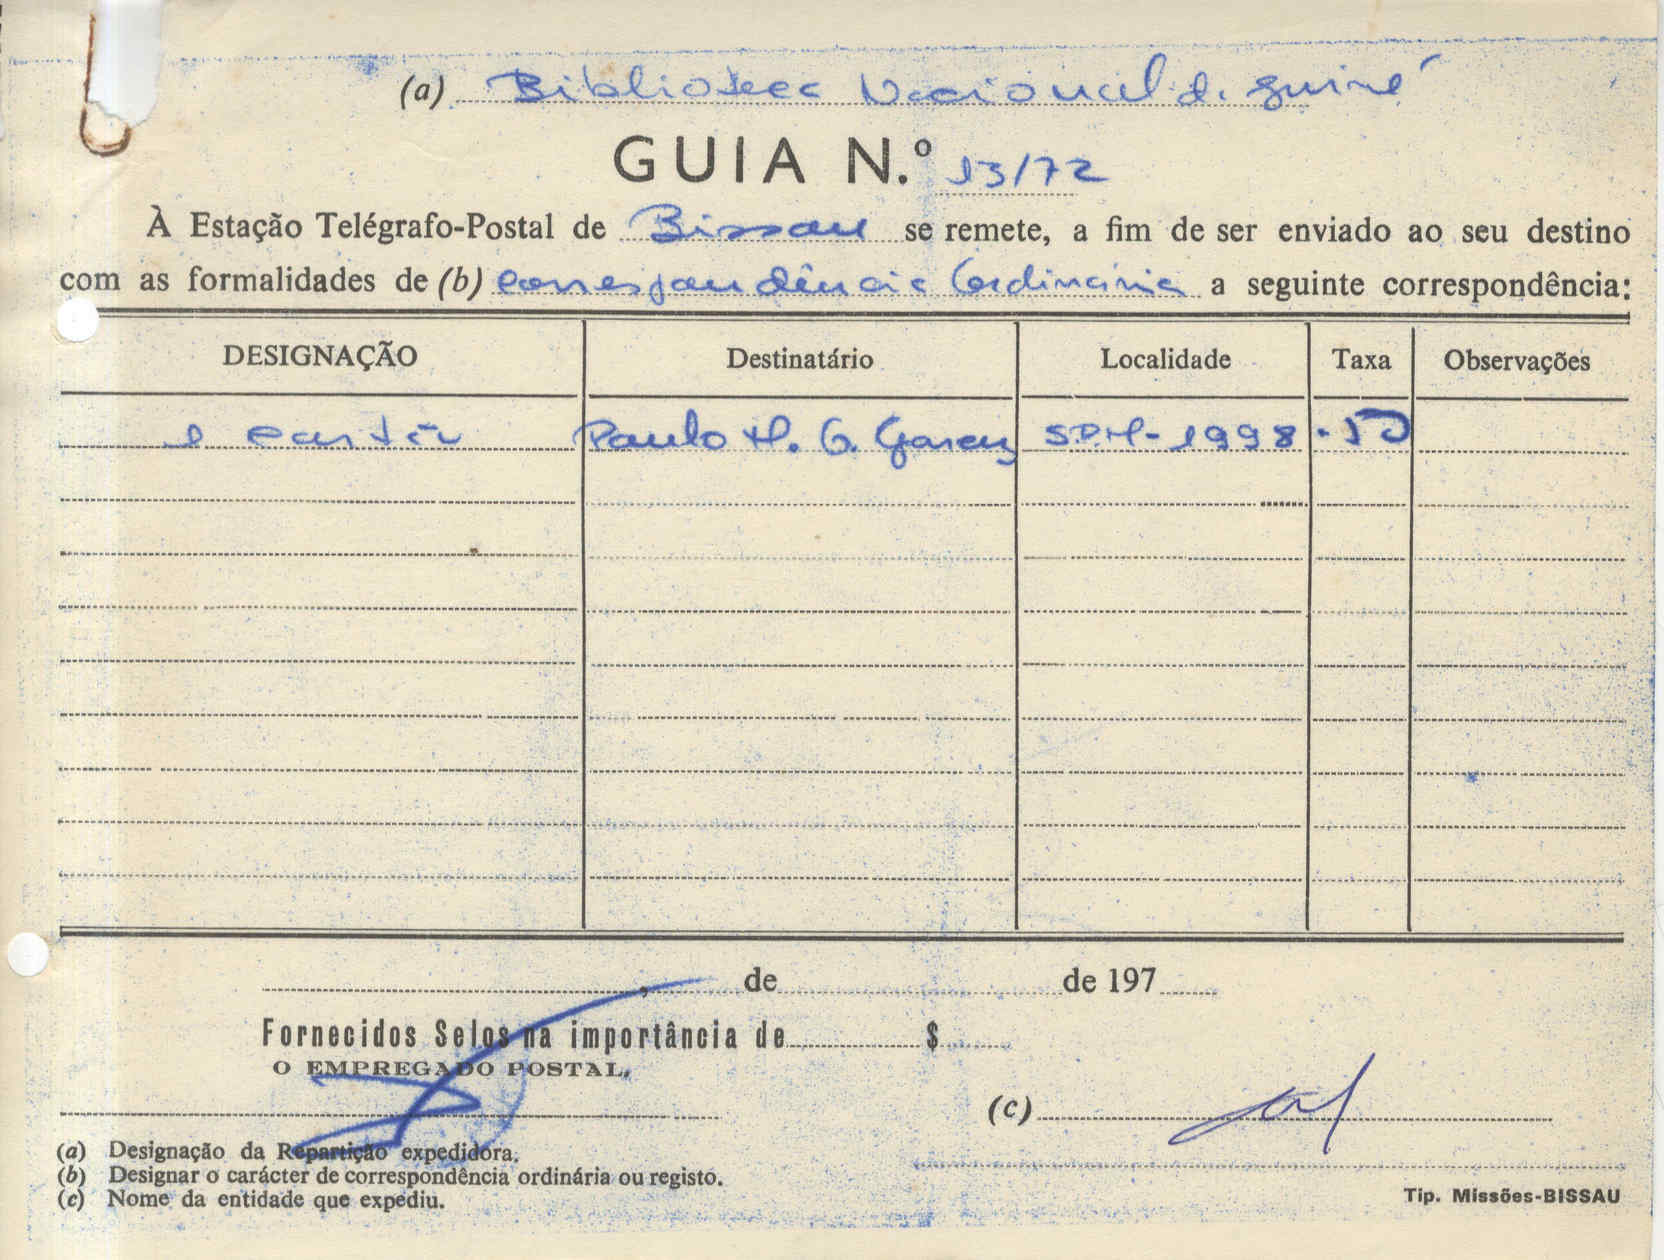 (a) Biblioteca Nacional da Guiné
GUIA N.º 13/72
À Estação Telégrafo-Postal de Bissau se remete, a fim de ser enviado ao seu destino
com as formalidades de (b) correspondência Ordinária a seguinte correspondência:
DESIGNAÇÃO Destinatário Localidade Taxa Observações
1 cartão Paulo H. G. S.P.M-1998 -50
, de de 197
Fornecidos Selos na importância de $
O EMPREGADO POSTAL,
(c)
(a) Designação da Repartição expedidora.
(b) Designar o carácter de correspondência ordinária ou registo.
(c) Nome da entidade que expediu.
Tip. Missões-BISSAU